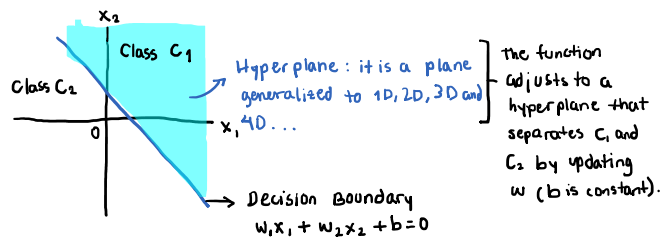 x₂
Class C₁
Class C₂
0
x₁
Hyperplane : it is a plane
generalized to 1D, 2D, 3D and
4D ...
The function
adjusts to a
hyperplane that
separates C₁ and
C₂ by updating
w (b is constant).
→ Decision Boundary
w₁x₁ + w₂x₂ + b = 0